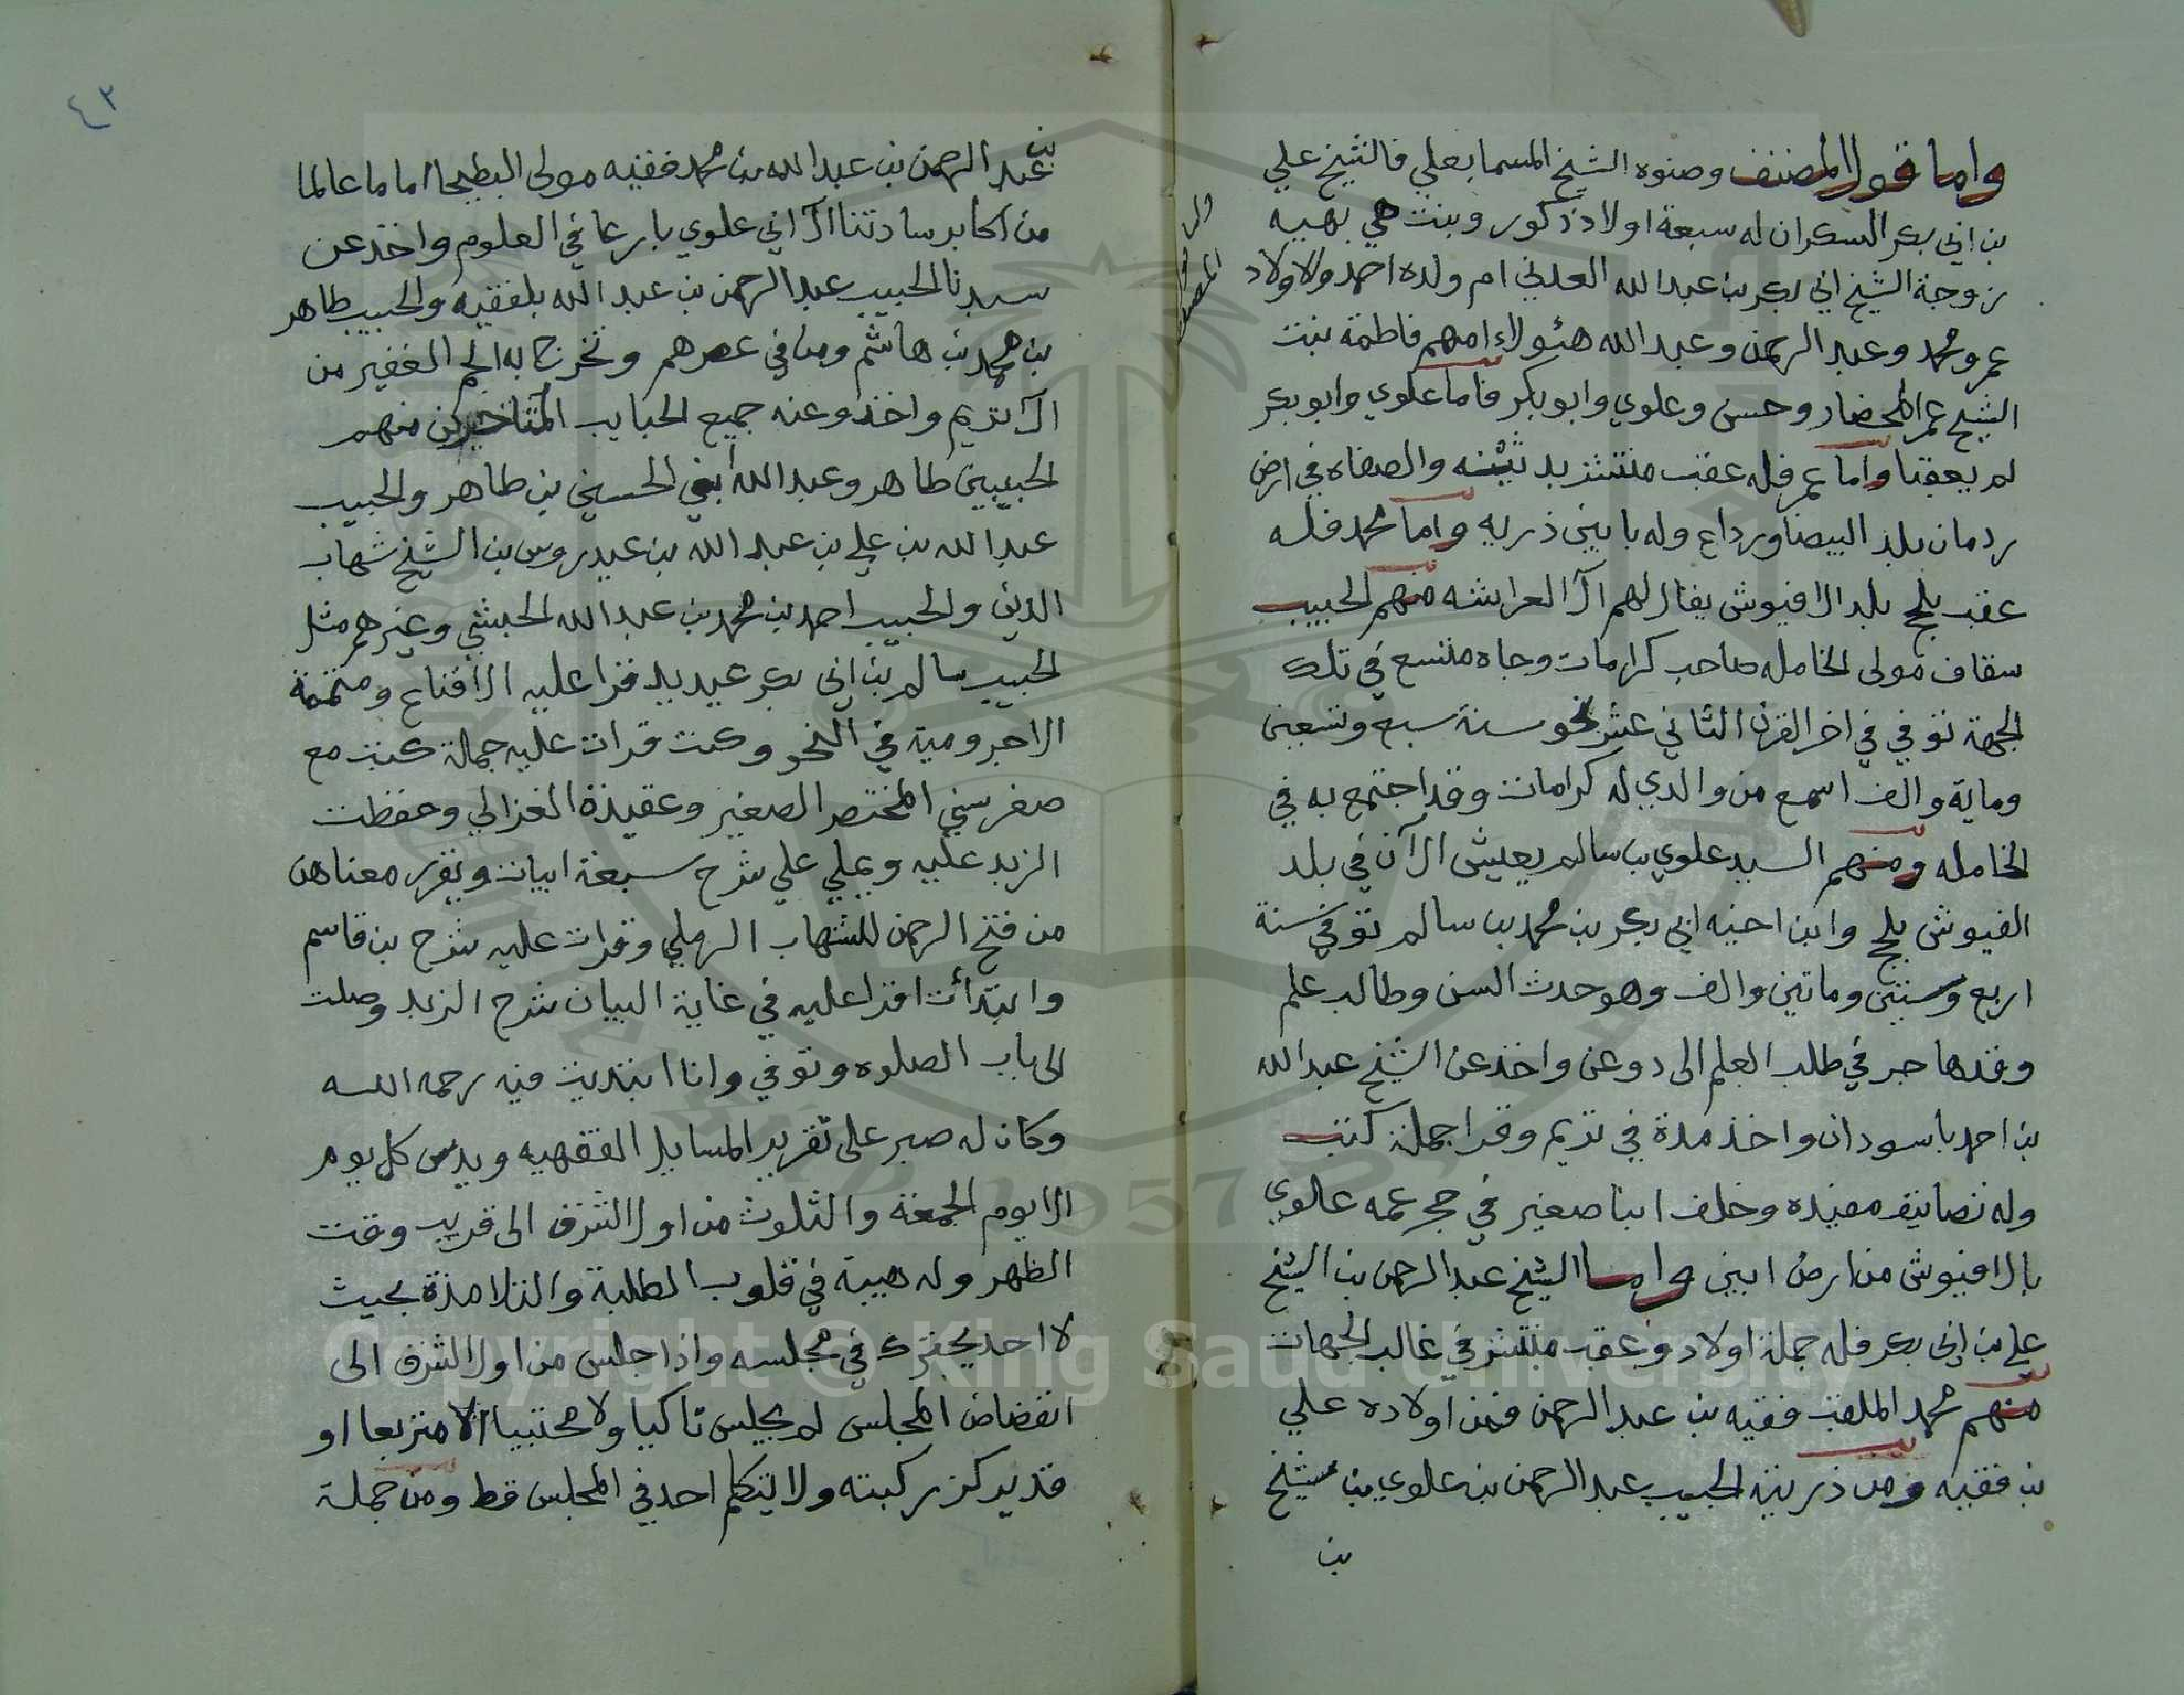 واما قول المصنف وصنوه الشيخ المسما بعلي فالشيخ علي
بن ابي بكر السكران له سبعة اولاد ذكور وبنت هي بهيه
زوجة الشيخ ابي بكر بن عبدالله العدني ام ولده احمد والاولاد
عمر ومحمد وعبد الرحمن وعبدالله هئولاء امهم فاطمة بنت
الشيخ عمر المحضار وحسن وعلوي وابوبكر فاما علوي وابوبكر
لم يعقبا واما عمر فله عقب منتشر بد ثينه والصفاه في ارض
ردمان بلد البيضا ورداع وله بابين ذريه واما محمد فله
عقب بلحج بلد الافيوش يقال لهم ال العرايشه منهم الحبيب
سقاف مولى الخامله صاحب كرامات وجاه متسع في تلك
الجهة توفي في اخر القرن الثاني عشر نحو سنة سبع وتسعين
وماية والف اسمع من والدي له كرامات وقد اجتمع به في
الخامله ومنهم السيد علوي بن سالم يعيش الآن في بلد
الفيوش بلحج وابن اخيه ابي بكر بن محمد بن سالم توفي سنة
اربع وستين وماتين والف وهو حدث السن وطالب علم
وقد هاجر في طلب العلم الى دوعن واخذ عن الشيخ عبدالله
بن احمد باسودان واخذ مدة في تريم وقرا جملة كتب
وله تصانيف مفيده وخلف ابنا صغير في حجر عمه علوي
بالافيوش من ارض ابين واما الشيخ عبدالرحمن بن الشيخ
علي بن ابي بكر فله جملة اولاد وعقب منتشر في غالب الجهات
منهم محمد الملقب فقيه بن عبدالرحمن فمن اولاده علي
بن فقيه ومن ذريته الحبيب عبدالرحمن بن علوي بن شيخ
بن
٤٣
بن
عبد الرحمن بن عبدالله بن محمد فقيه مولى البطيحا اماما عالما
من اكابر سادتنا ال ابي علوي بارعا في العلوم واخذ عن
سيدنا الحبيب عبدالرحمن بن عبدالله بلفقيه والحبيب طاهر
بن محمد بن هاشم ومن في عصرهم وتخرج به الجم الغفير من
ال تريم واخذو عنه جميع الحبايب المتاخرين منهم
الحبيبين طاهر وعبدالله ابني الحسين بن طاهر والحبيب
عبدالله بن علي بن عبدالله بن عيدروس بن الشيخ شهاب
الدين والحبيب احمد بن محمد بن عبدالله الحبشي وغيرهم مثل
الحبيب سالم بن ابي بكر عيديد قرا عليه الاقناع ومتممة
الاجرومية في النحو وكنت قرات عليه جملة كتب مع
صغر سني المختصر الصغير وعقيدة الغزالي وحفظت
الزبد عليه ويملي علي شرح سبعة ابيات ويقرر معناهن
من فتح الرحمن للشهاب الرملي وقرات عليه شرح بن قاسم
وابتدأت اقرا عليه في غاية البيان شرح الزبد وصلت
الى باب الصلوه وتوفي وانا ابتديت فيه رحمه الله
وكان له صبر على تقرير المسايل الفقهيه ويدرس كل يوم
الا يوم الجمعة والثلوث من اول الشرق الى قريب وقت
الظهر وله هيبة في قلوب الطلبة والتلامذة بحيث
لا احد يتحرك في مجلسه واذا جلس من اول الشرق الى
انقضاض المجلس لم يجلس تاكيا ولا محتبيا الا متربعا او
قد يركز ركبته ولا يتكلم احد في المجلس قط ومن جملة
Copyright © King Saud University